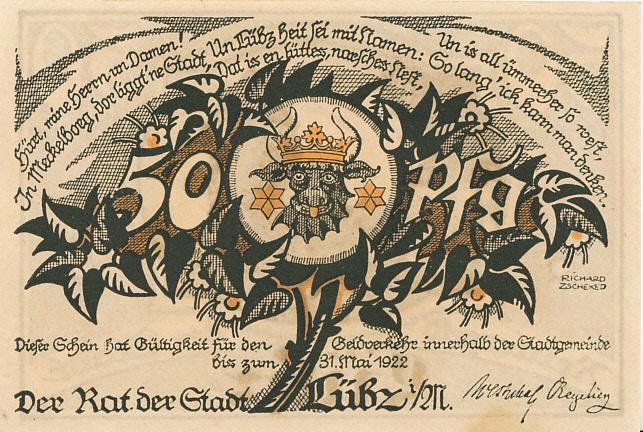 Hürt, mine Herrn un Damen!
In Mekelborg, dor liggt 'ne Stadt,
Un Lübz heit sei mit Namen:
Dat is en lüttes, narsches Nest,
Un is all ümmerher so west,
So lang' ick kam man denken.
50 Pfg
RICHARD
ZSCHEKED
Dieser Schein hat Gültigkeit für den Geldverkehr innerhalb der Stadtgemeinde
bis zum 31. Mai 1922
Der Rat der Stadt Lübz i/M.